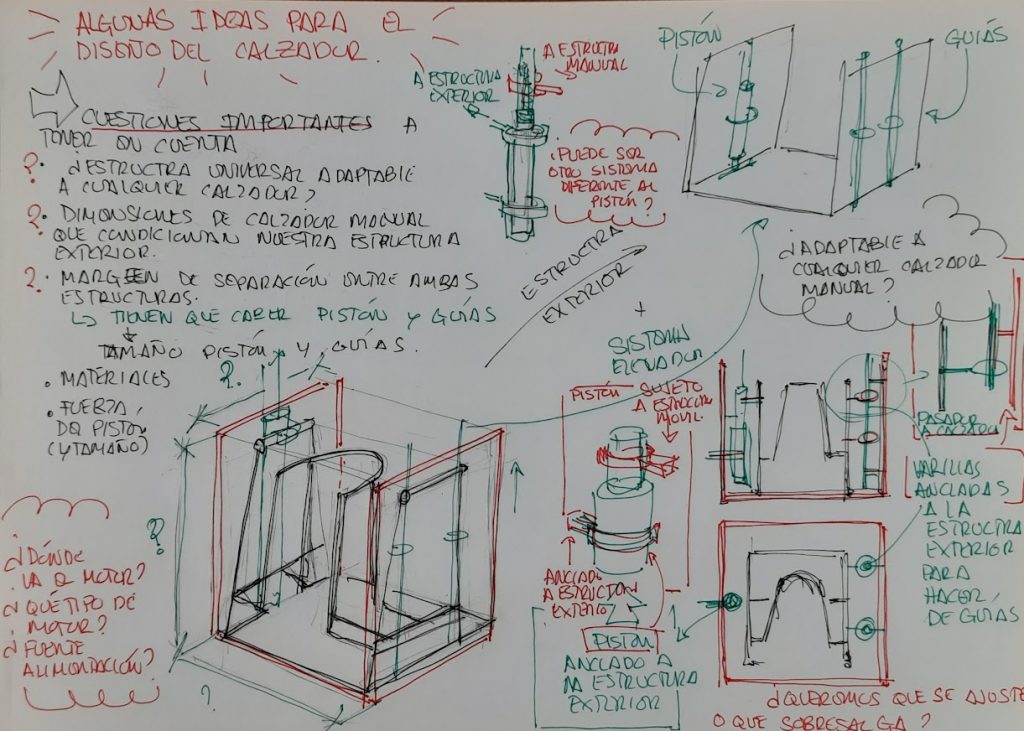 ALGUNAS IDEAS PARA EL
DISEÑO DEL CALZADOR.
CUESTIONES IMPORTANTES A
TENER EN CUENTA
? ¿ESTRUCTRA UNIVERSAL ADAPTABLE
A CUALQUIER CALZADOR?
? DIMENSIONES DE CALZADOR MANUAL
QUE CONDICIONAN NUESTRA ESTRUCTURA
EXTERIOR.
? MARGEEN DE SEPARACIÓN ENTRE AMBAS
ESTRUCTURAS.
↳ TIENEN QUE CABER PISTÓN Y GUÍAS
TAMAÑO PISTÓN Y GUÍAS.
• MATERIALES
• FUERZA,
DE PISTON
(Y TAMAÑO)
?
?
?
¿DÓNDE
VA EL MOTOR?
¿QUÉ TIPO DE
MOTOR?
¿FUENTE
ALIMENTACIÓN?
A ESTRUCTRA
MANUAL
A ESTRUCTURA
EXTERIOR
¿PUEDE SER
OTRO SISTEMA
DIFERENTE AL
PISTÓN?
PISTÓN
GUÍAS
ESTRUCTRA
EXTERIOR
+
SISTEMA
ELEVADOR
¿ADAPTABLE A
CUALQUIER CALZADOR
MANUAL?
PISTÓN
SUJETO
A ESTRUCTURA
MÓVIL.
ANCLADO
A ESTRUCTURA
EXTERIOR
PISTÓN
ANCLADO A
LA ESTRUCTURA
EXTERIOR
PASADOR
A CALZADOR
VARILLAS
ANCLADAS
A LA
ESTRUCTURA
EXTERIOR
PARA
HACER
DE GUIAS
¿QUEREMOS QUE SE AJUSTE
O QUE SOBRESALGA?